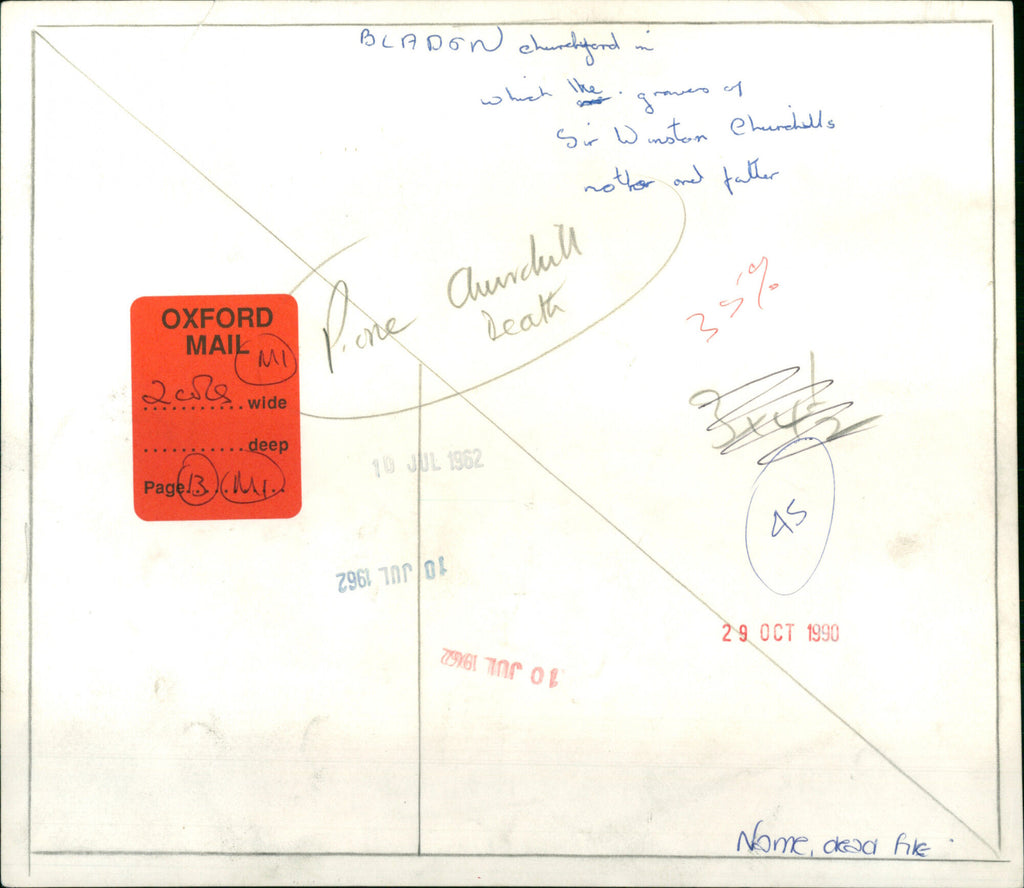 BLADON churchyard in
which the graves of
Sir Winston Churchills
mother and father
Churchill
Death
35%
OXFORD
MAIL
M1
2 cols wide
deep
Page 13 M1
3x4½
10 JUL 1962
45
10 JUL 1962
29 OCT 1990
10 JUL 1962
Name, dead file